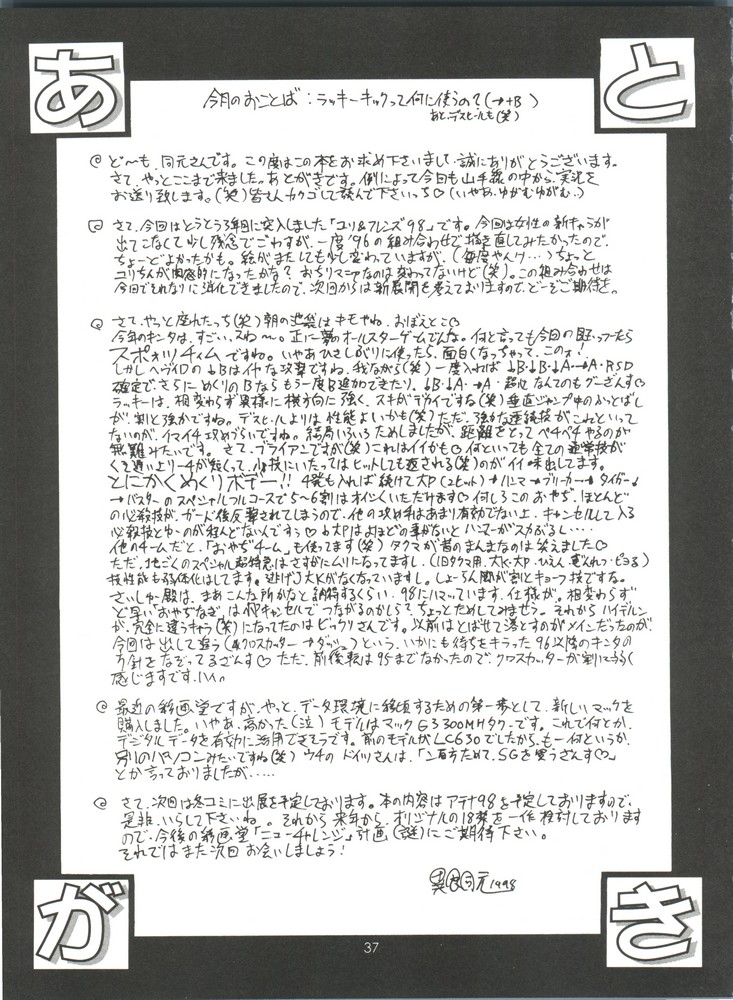 あとがき
今月のおことば：ラッキーキックって何に使うの？（→+B）
あと、デスヒールも(笑)
ど〜も、同元さんです。この度はこの本をお求め下さいまして、誠にありがとうございます。
さて、やっとここまで来ました。あとがきです。例によって今日も山手線の中から、実況を
お送り致します。(笑)皆さんカクゴして読んで下さいっち♡（いやあ、ゆがむゆがむ。）
さて、今回はとうとう3年目に突入しました「ユリ&フレンズ98」です。今回は女性の新キャラが
出てこなくて少し残念でごわすが、一度'96の組み合わせで描き直してみたかったので、
ちょーどよかったかも。絵がまたしても少し変わっていますが、（毎度やんけ…）ちょっと
ユリちゃんが肉感的になったかな？おちりマニアなのは変わってないけど(笑)。この組み合わせは
今回でそれなりに消化できましたので、次回からは新展開を考えておりますので、どーぞご期待を。
さて、やっと座れたっち(笑)朝の池袋はキモやね、おぼえとこ♡
今年のキンタは、すごいっスね〜。正に夢のオールスターゲームでんな。何と言っても今回の
スポオツチィムですね。いやあひさしぶりに使ったら、面白くなっちゃって、このォ！
しかしヘヴィDの↓Bはイヤな攻撃ですね、我ながら(笑)一度入れば↓B・↓B・↓A→A・RSD
確定で、さらにめくりのBならもう一度B追加できたり。↓B・↓A・→A・超必なんてのもグーざんす♡
ラッキーは、相変わらず異様に横方向に強く、スキがデカイですな(笑)垂直ジャンプ中のふっとばし
が、割と強かですね。デスヒールよりは性能よいかも(笑)ただ、強力な連続技がこれといって
ないのが、イマイチ攻めづらいですね。結局いろいろためしましたが、距離をとってペチペチやるのが
無難みたいです。さて、ブライアンですが(笑)これはイイかも♡何といっても全ての通常技が
くさい上リーチが短くって、必技にいたってはヒットしても反される(笑)のがイイ味出してます。
とにかくめくりボデー!!4発も入れば続けて大P(2ヒット)→ハンマー→ブリーカー→タイガー↓
→バスターのスペシャルフルコースで5〜6割はオイシくいただけます♡何しろこのおやぢ、ほとんど
の必殺技が、ガード後反撃されてしまうので、他の攻め手はあまり有効でない上、キャンセルして入る
必殺技とゆーのが殆んどないんですっ♡
他のチームだと、「おやぢチーム」も使ってます(笑)タクマが昔のまんまなのは笑えました♡
ただ、地ごくのスペシャル超特急はさすがにムリになってますし、
技性能も弱体化はしてます。逃げJ大Kがなくなっていますし。しょーらん脚が割とキョーフ技ですな。
さいしゅー殿は、まあこんな所かなと納得するくらい、98にハマッています、仕様が。相変わらず
ど早い"おやぢなぎ"は小Pキャンセルでつながるのかしら？ちょっとためしてみませう。それからハイデルン
が、完全に違うキャラ(笑)になってたのはビックリさんです。以前はとばせて落とすのがメインだったのが、
今回は出して襲う（小クロスカッター→ダッシュ）という、いかにも待ちをキラった96以降のキンタの
方針をなぞってるざんす♡ただ、前後転は95までなかったので、クロスカッターが割とうるさく
感じますです、ハイ。
最近の彩画堂ですが、やっと、データ環境に移項するための第一歩として、新しいマックを
購入しました。いやあ、高かった(泣)モデルはマックG3 300MHタワーです。これで何とか、
デジタルデータを有効に活用できそうです。前のモデルがLC630でしたから、もー何というか
別のパソコンみたいですね(笑)ウチのドイツさんは、「二百万ためて、SGを買うざんす♡」
とか言っておりましたが.....
さて、次回は冬コミに出展を予定しております。本の内容はアテナ98を予定しておりますので、
是非、いらして下さいね。それから来年から、オリジナルの18禁を一作検討しております
ので、今後の彩画堂「ニューチャレンジ」計画(謎)にご期待下さい。
それではまた次回お会いしましょう！
1998
37